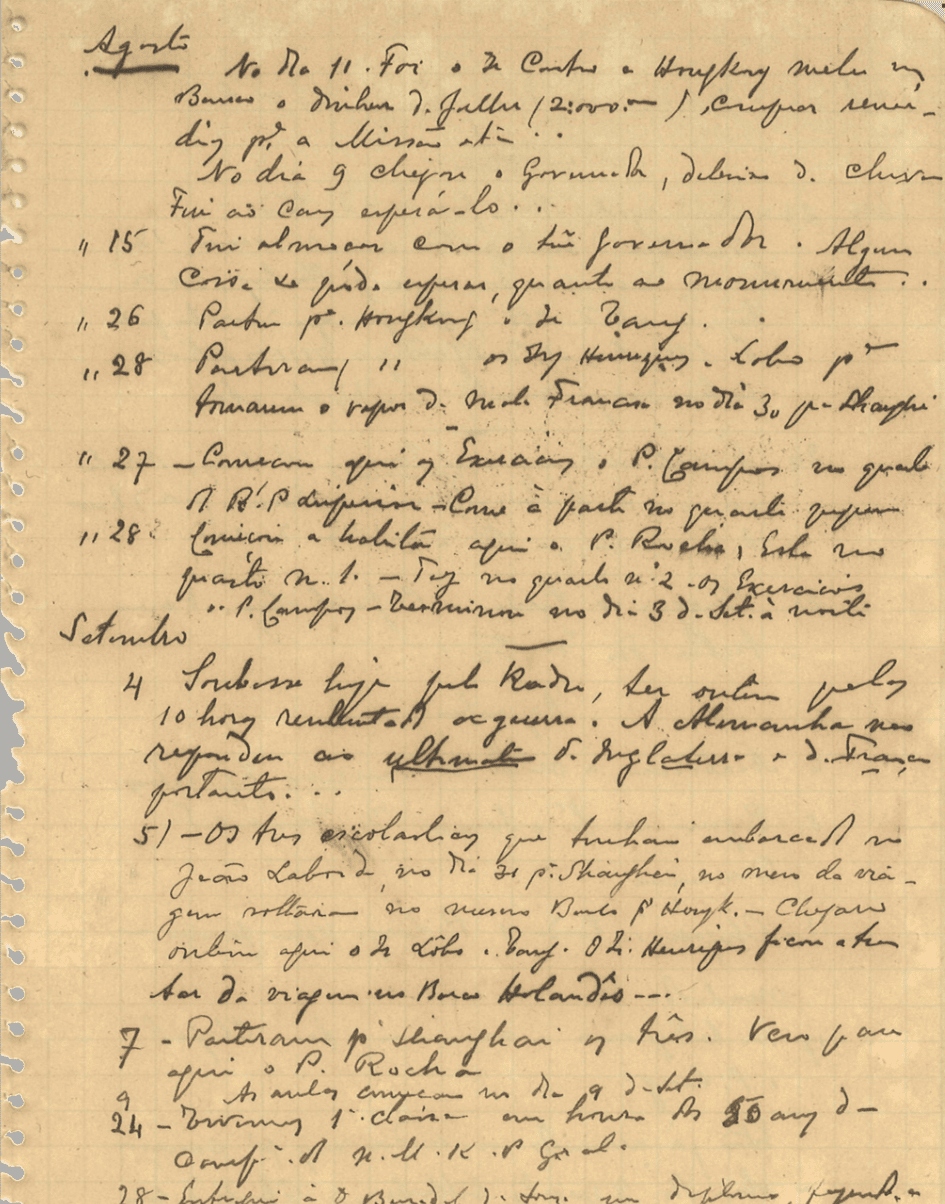 Agosto
No dia 11. Foi o Ir. Castro a Hongkong meter no
Banco o dinheiro de Julho (2:000.=)
p.ª a Missão etc...
No dia 9 chegou o Governador, debaixo de chuva
Fui ao Cais esperá-lo...
" 15 Fui almoçar com o Snr Governador. Alguma
Coisa se póde esperar, quanto ao monumento..
" 26 Partiu pª. Hongkong o Ir Tang.
" 28 Partiram " os Henriques e Lobo pª
tomarem o vapor da Mala Francesa no dia 30 pª Shanghai
" 27 - Começou aqui os Exercícios o P. Campos no quarto
do R.P Superior - Come à parte no quarto pequeno
" 28 Começou a habitar aqui o P. Rocha, Está no
quarto n. 1. - Faz no quarto nº 2 os Exercicios
o P. Campos - Terminou no dia 3 de Set. à noite
Setembro
4 Soubesse hoje pelo Radio, ter ontem pelas
10 horas rebentado a guerra. A Alemanha não
respondeu ao ultimato da Inglaterra e da França
portanto...
5) - Os tres escolasticos que tinham embarcado no
Jean Laborde, no dia 31 pª. Shanghai, no meio da via-
gem voltaram no mesmo Barco pª Hongk. - Chegaram
ontem aqui o Ir Lôbo e Tang. O Ir. Henriques ficou a tra
tar da viagem no Barco Holandês ---.
7 - Partiram pª Shanghai os três. Veio para
aqui o P. Rocha
9 As aulas começam no dia 9 de Set.
24 - Tivemos 1ª classe em honra dos 50 anos de
Comp.ª do N. M. R. P Geral.
28 - Entreguei à D um diploma